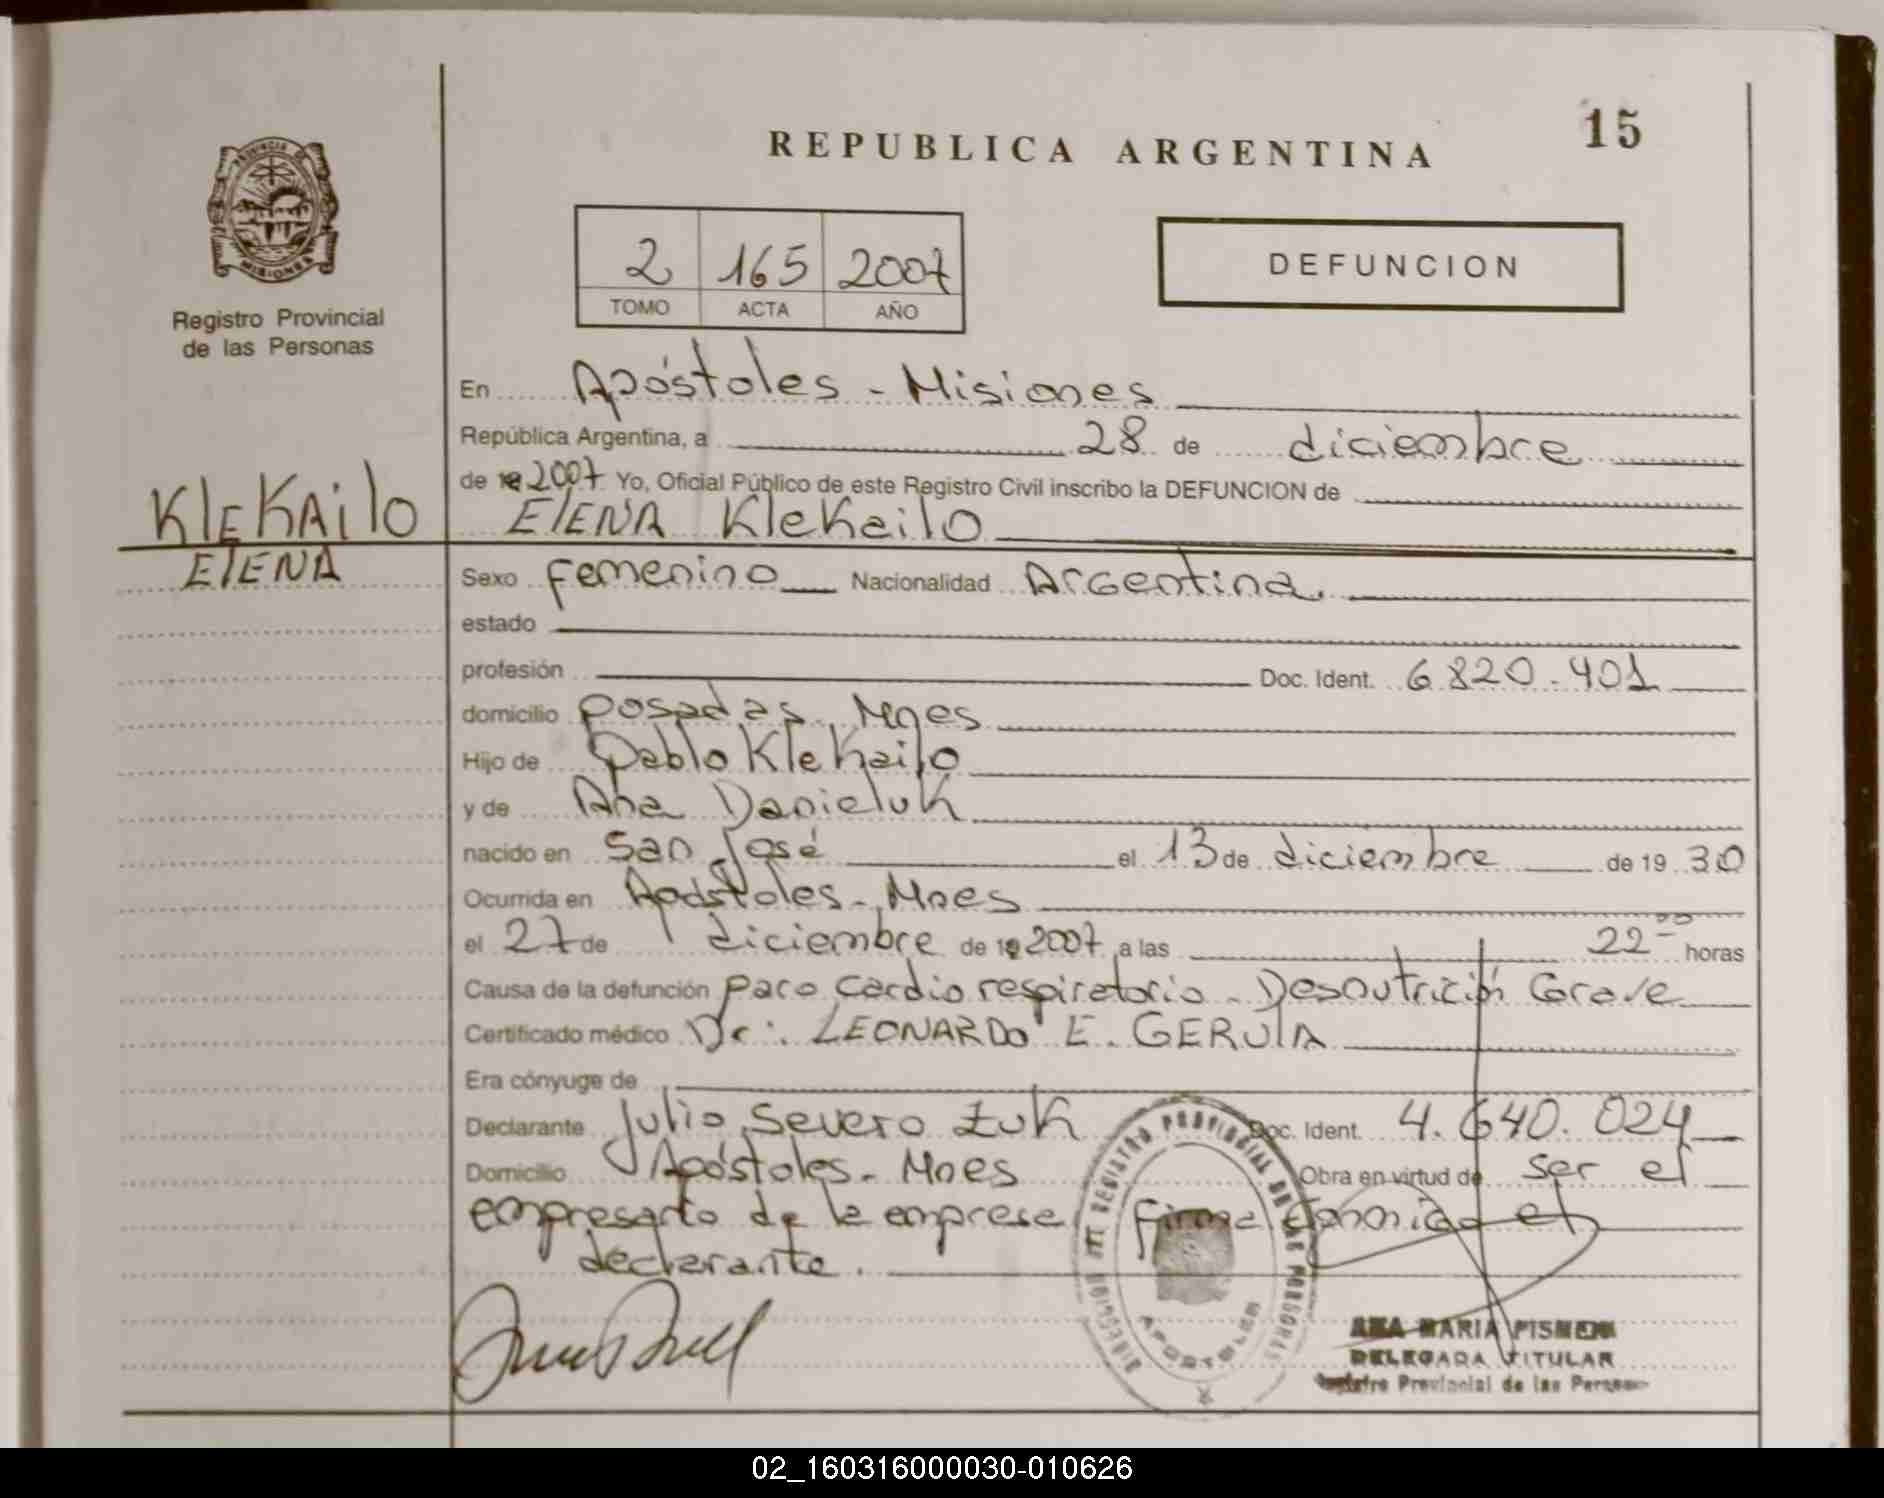 REPUBLICA ARGENTINA
15
PROVINCIA DE
MISIONES
Registro Provincial
de las Personas
2 165 2007
TOMO ACTA AÑO
DEFUNCION
En Apóstoles - Misiones
República Argentina, a 28 de diciembre
de 2007 Yo, Oficial Público de este Registro Civil inscribo la DEFUNCION de
KlEKAilo
ElENA
ElENA KleKailo
Sexo Femenino Nacionalidad Argentina.
estado
profesión Doc. Ident. 6.820.401
domicilio Posadas. Mnes
Hijo de Pablo KleKailo
y de Ana Danieluk
nacido en San José el 13 de diciembre de 19 30
Ocurrida en Apóstoles - Mnes
el 27 de diciembre de 2007 a las 22 00 horas
Causa de la defunción paro cardio respiratorio - Desnutrición Grave
Certificado médico Dr: LEONARDO E. GERULA
Era cónyuge de
Declarante Julio Severo Zuk Doc. Ident. 4.640.024
Domicilio Apóstoles - Mnes Obra en virtud de ser el
empresario de la empresa firma conmigo el
declarante.
DIRECCION DEL REGISTRO PROVINCIAL DE LAS PERSONAS
APOSTOLES
ANA MARIA
DELEGADA TITULAR
Registro Provincial de las Personas
02_160316000030-010626